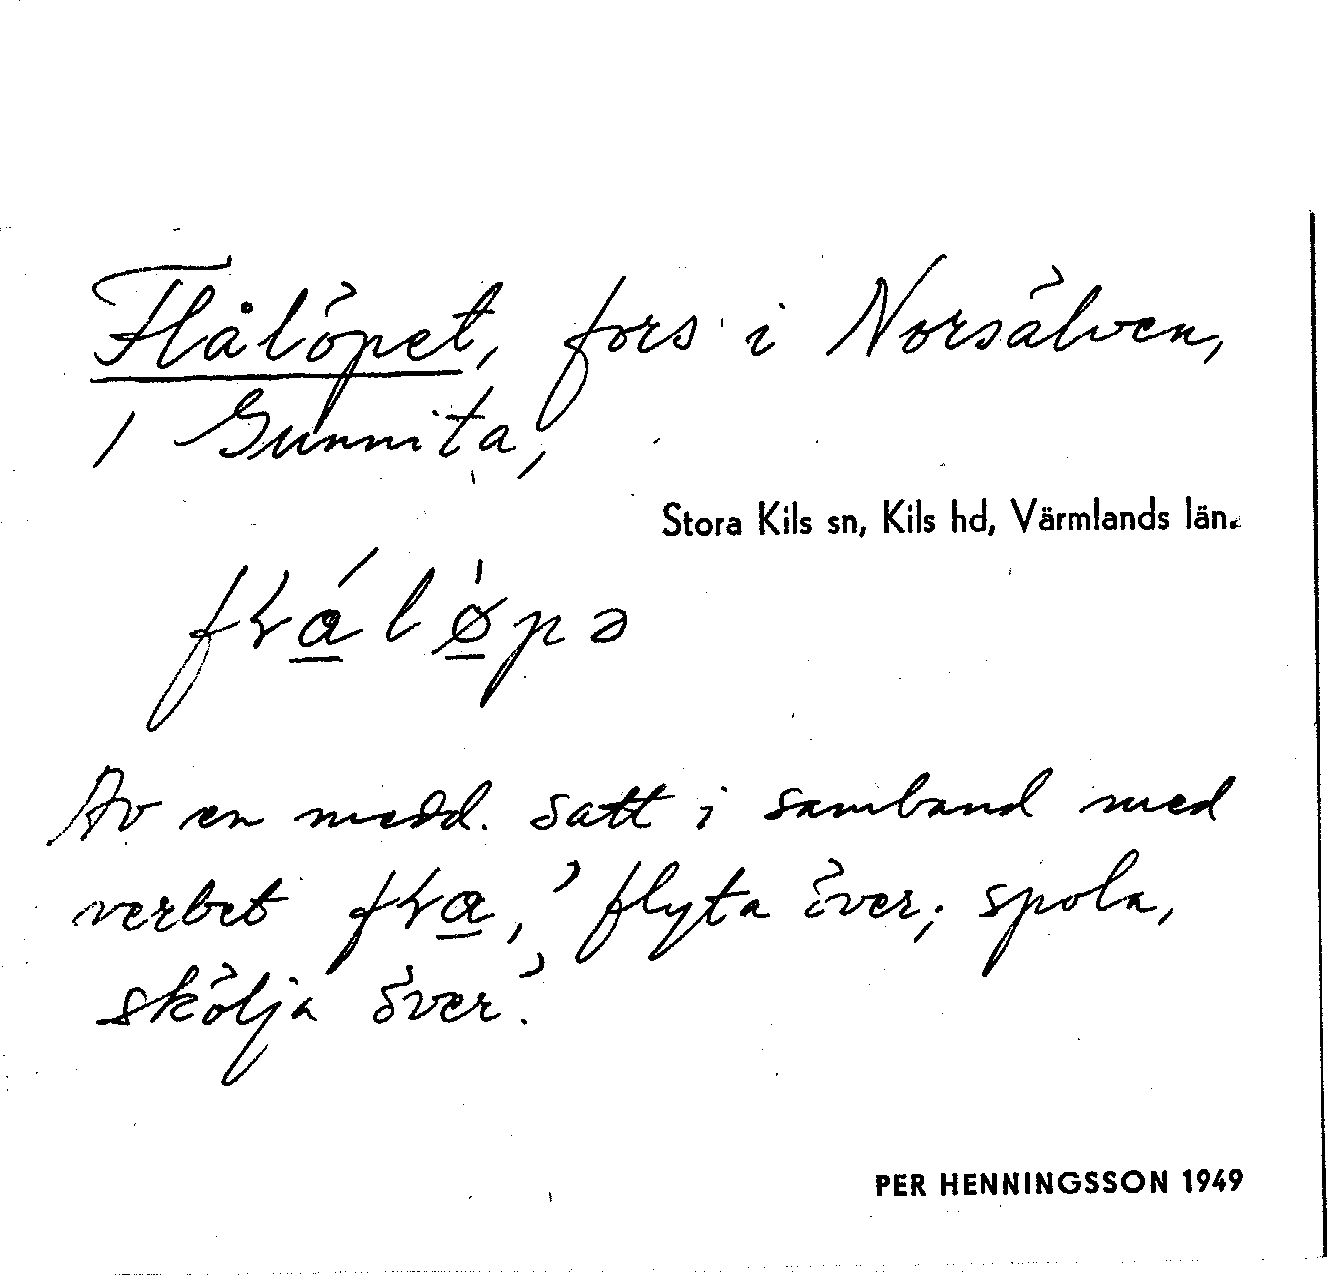 Flålöpet, fors i Norsälven,
/ Gunnita,
Stora Kils sn, Kils hd, Värmlands län.
Av en medd. satt i samband med
verbet , ’flyta över; spola,
skölja över’.
PER HENNINGSSON 1949